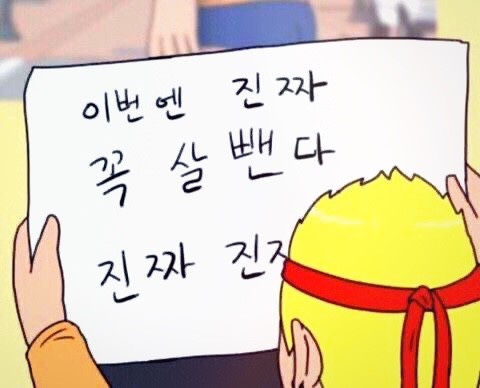 이번엔 진짜
꼭 살뺀다
진짜 진